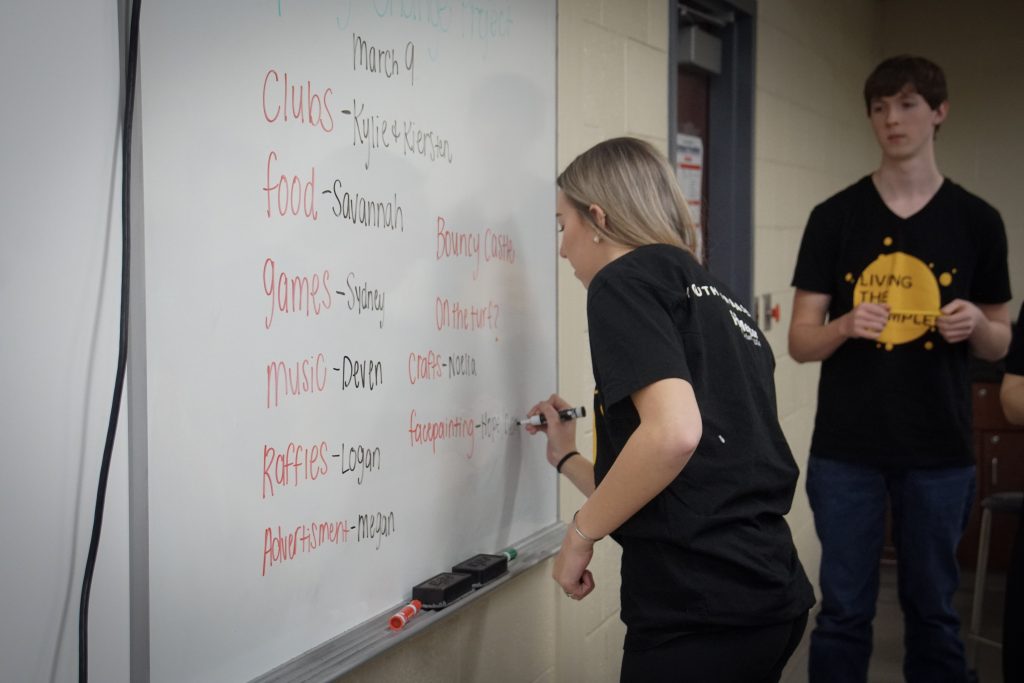 Change Project
March 9
Clubs - Kylie & Kiersten
food - Savannah
games - Sydney
music - Deven
Raffles - Logan
Advertisment - megan
Bouncy Castle
On the turf?
Crafts - Noella
facepainting - Hope
LIVING
THE